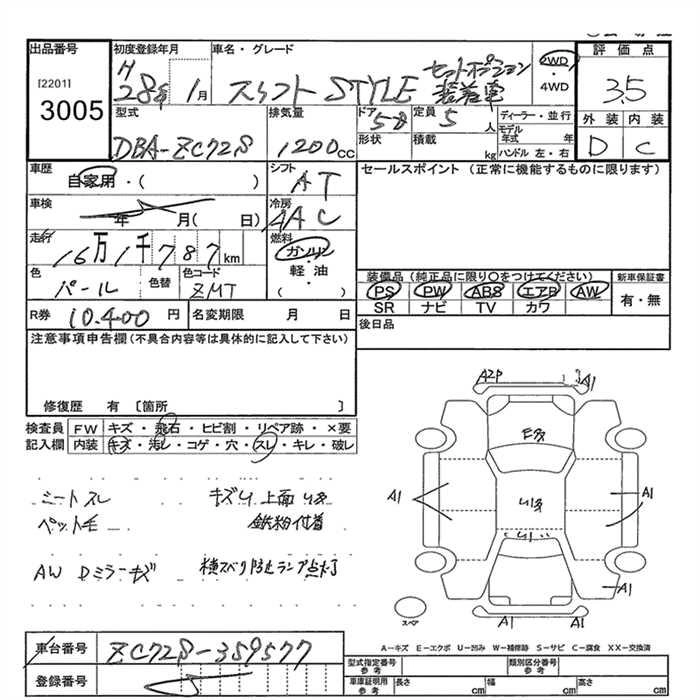 出品番号
[2201]
3005
初度登録年月
H28年 1月
車名・グレード
スイフト STYLE セットオプション装着車
2WD
・4WD
評価点
3.5
外装 内装
D C
型式
DBA-ZC72S
排気量
1200cc
ドア 5
形状
定員 5 人
積載 kg
ディーラー・並行
モデル年式 年
ハンドル 左・右
車歴
自家用・( )
シフト
AT
セールスポイント (正常に機能するものに限ります)
車検
年 月( 日)
冷房
AAC
走行
16万1千787km
燃料
ガソリン
軽油
( )
色
パール
色替
色コード
ZMT
装備品(純正品に限り〇をつけてください)
PS PW ABS エアB AW
SR ナビ TV カワ
新車保証書
有・無
R券 10.400円
名変期限 月 日
後日品
注意事項申告欄(不具合内容等は具体的に記入して下さい)
修復歴 有 〔箇所 〕
検査員記入欄
FW キズ・飛石・ヒビ割・リペア跡・×要
内装 キズ・汚レ・コゲ・穴・スレ・キレ・破レ
シートスレ
キズU 上面
ペット毛
鉄粉付着
AW Dミラーキズ
横スベリ防止ランプ点灯
A2P
1
3
A1
A1
A1
A1
A1
A1
スペア
A-キズ E-エクボ U-凹み W-補修跡 S-サビ C-腐食 XX-交換済
車台番号
ZC72S-359577
登録番号
型式指定番号 参考
類別区分番号 参考
車庫証明用 参考
長さ cm
幅 cm
高さ cm